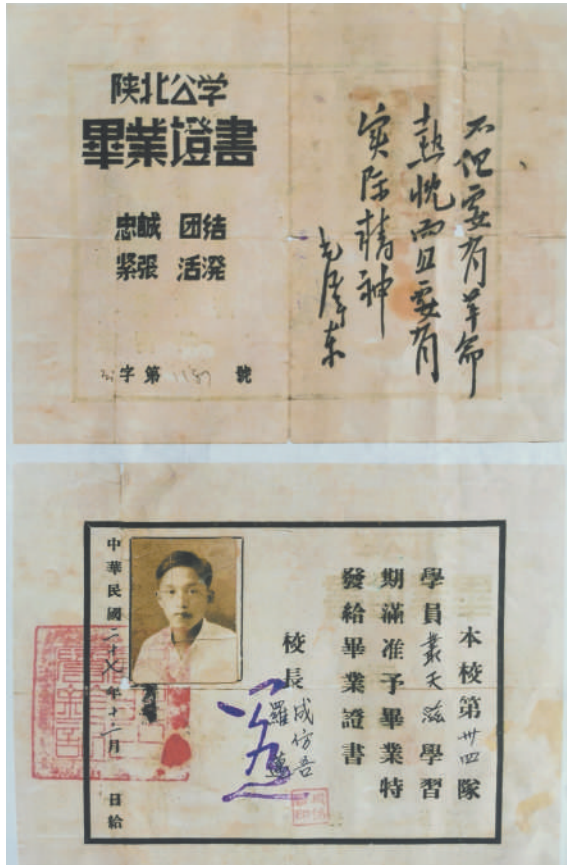 陕北公学
畢業證書
忠誠 团结
緊張 活潑
字第1157號
不但要有革命
热忱而且要有
实际精神
毛泽东
本校第卅四隊
學員叢天滋學習
期滿准予畢業特
發給畢業證書
校長 成仿吾
羅邁
中華民國二十七年十二月 日給